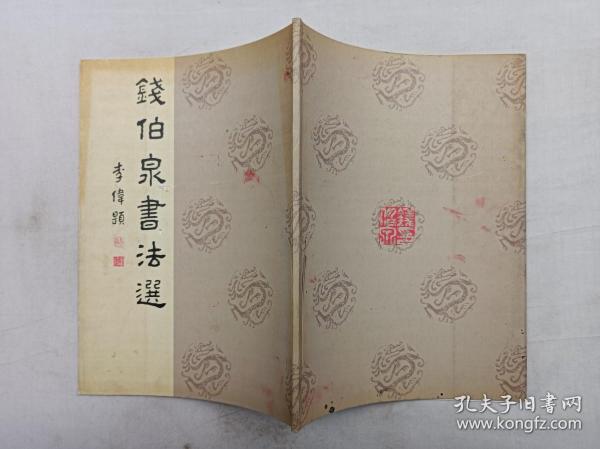 錢伯泉書法選
李偉題
孔夫子旧書网
www.kongfz.com